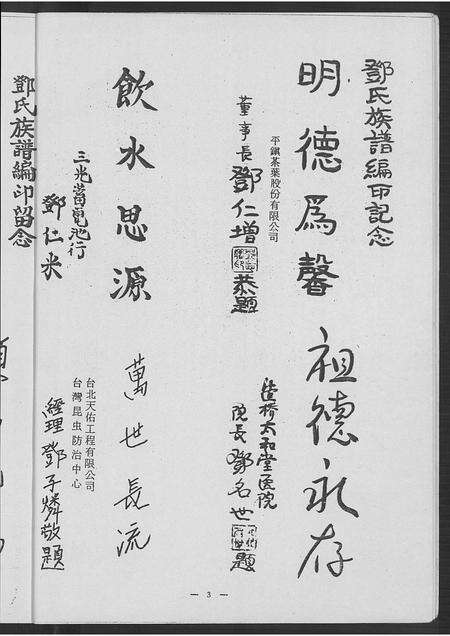 鄧氏族譜編印記念
明德爲馨
平鎮茶葉股份有限公司
董事長 鄧仁增 恭題
祖德永存
造橋太和堂医院
院長 鄧名世 題
飲水思源
三光蓄電池行
鄧仁米
萬世長流
台北天佑工程有限公司
台灣昆虫防治中心
經理 鄧子燐敬題
鄧氏族譜編印留念
— 3 —